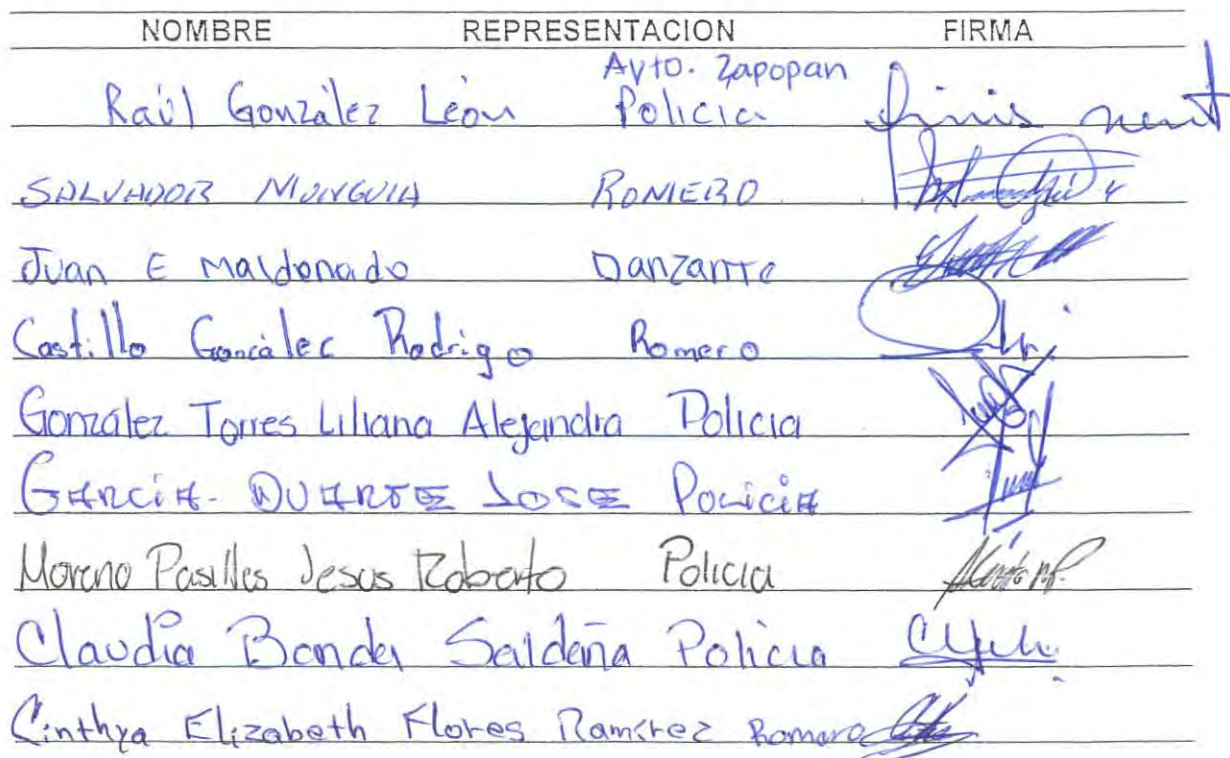 NOMBRE REPRESENTACION FIRMA
Ayto. Zapopan
Raúl González León Policía
SALVADOR MUNGUIA ROMERO
Juan E Maldonado Danzante
Castillo González Rodrigo Romero
González Torres Liliana Alejandra Policia
GARCIA. DUARTE JOSE POLICIA
Moreno Pasilles Jesus Roberto Policia
Claudia Banda Saldaña Policia
Cinthya Elizabeth Flores Ramírez Romero